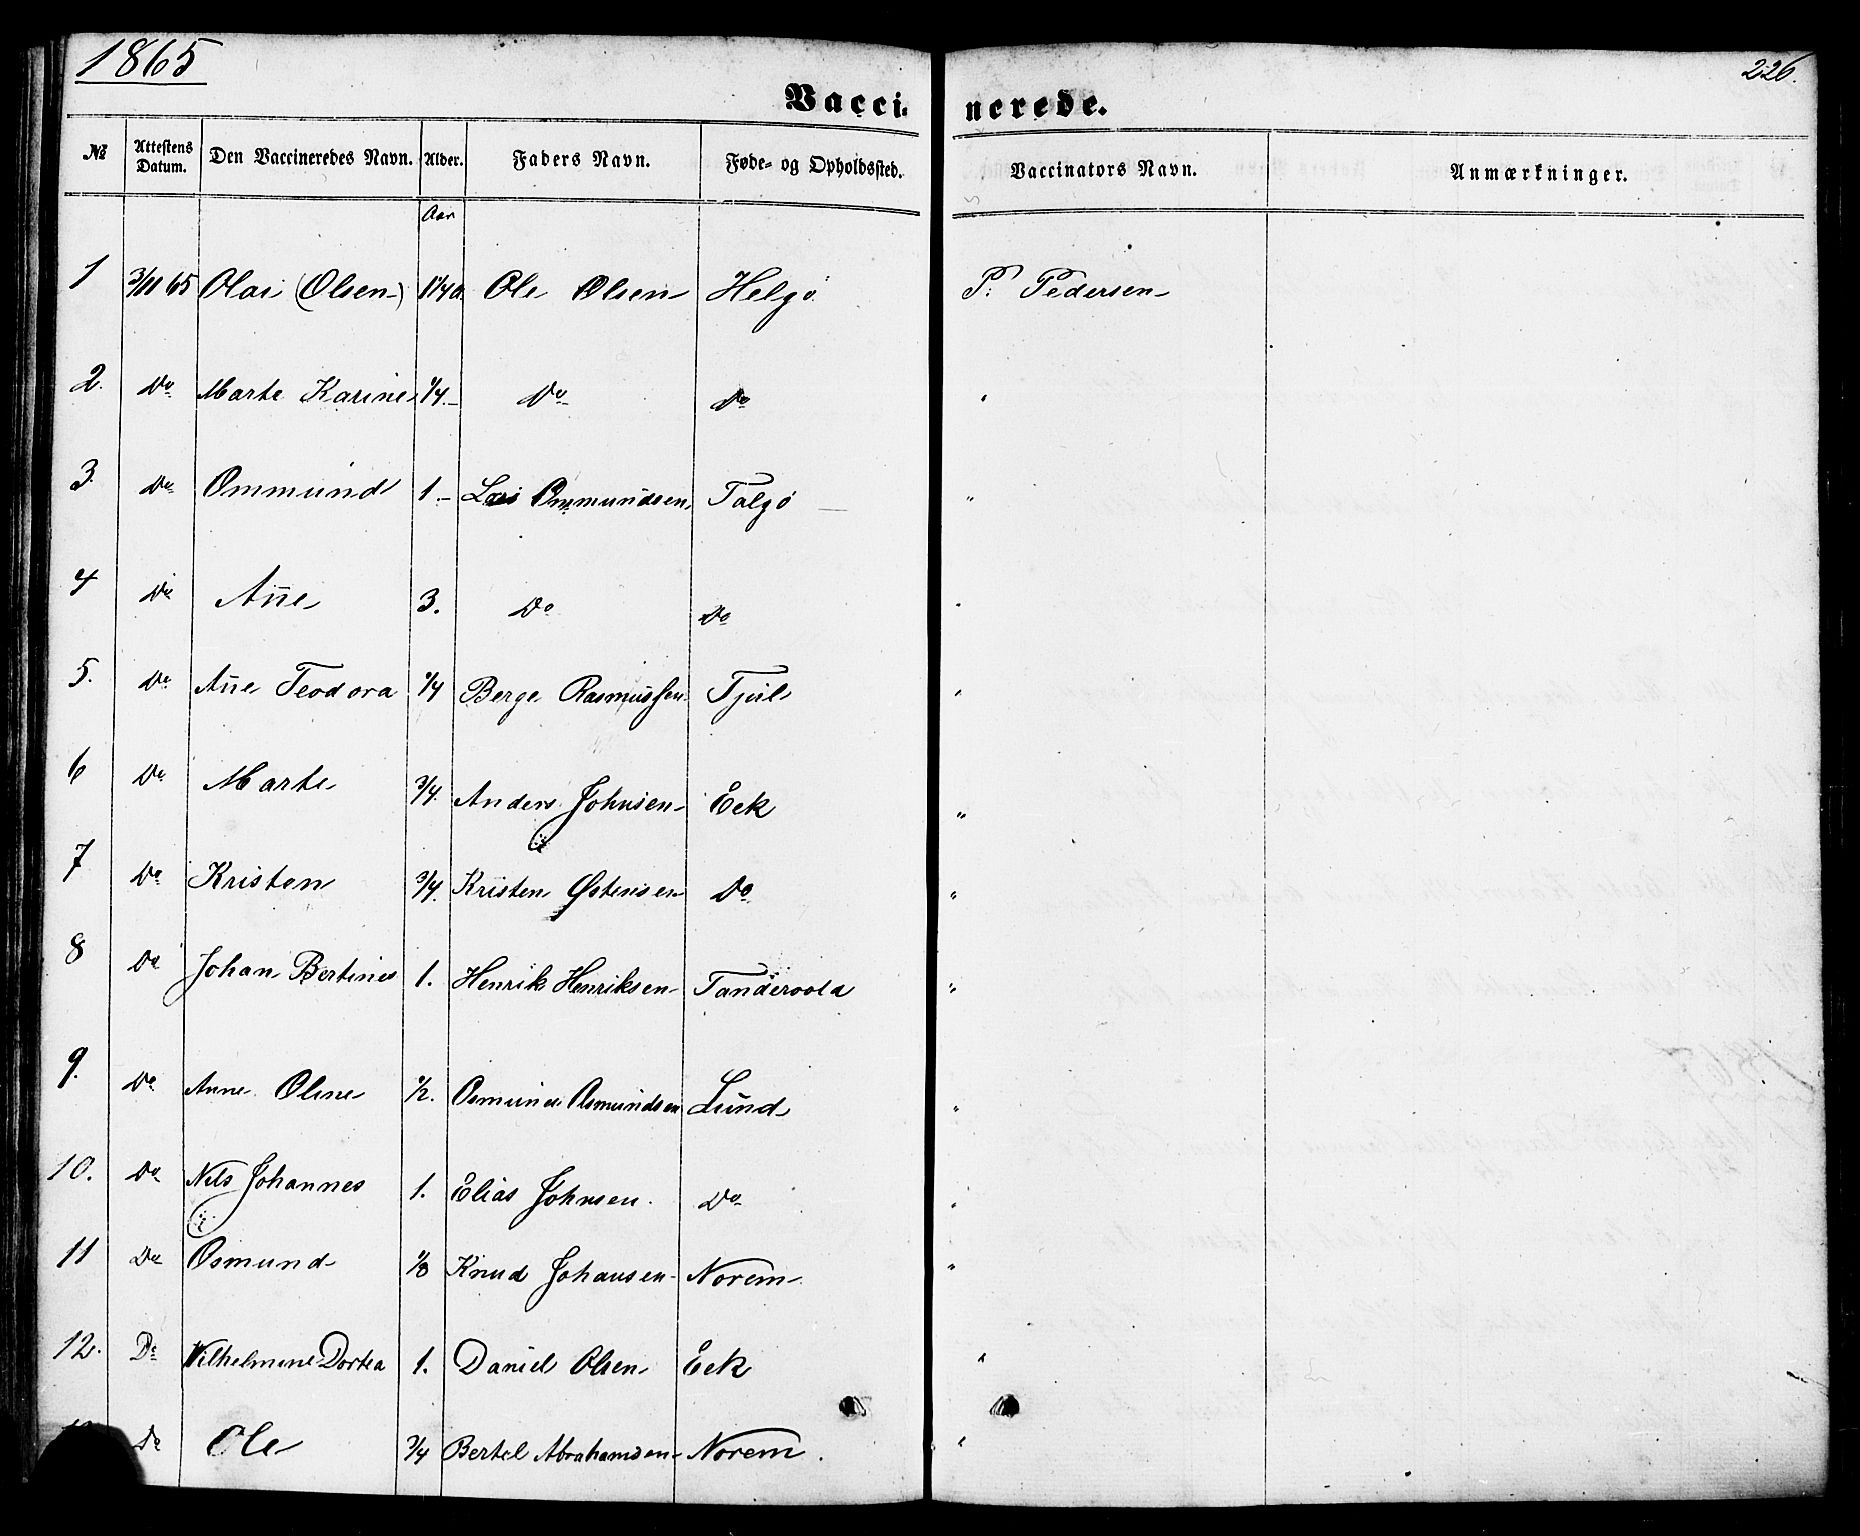 1865
226.
Vacci- nerede.
№ Attestens Datum. Den Vaccineredes Navn. Alder. Faders Navn. Føde- og Opholdssted. Vaccinators Navn. Anmærkninger.
Aar
1 3/11 65 Olai (Olsen) 1 1/4 a Ole Olsen Helgø P. Pedersen
2. Do Marte Karine 1/4 Do Do "
3. Do Ommund 1. Lars Ommundsen Talgø "
4 Do Añe 3. Do Do "
5. Do Añe Teodora 1/4 Berge Rasmussen Tjul "
6 Do Marte 3/4. Anders Johnsen Eek "
7 Do Kristen 3/4. Kristen Østensen Do "
8 Do Johan Bertines 1. Henrik Henriksen "
9. Do Anne Oline 1/2. Osmund Osmundsen Lund "
10. Do Nels Johannes 1. Elias Johnsen. Do "
11 Do Osmund 1/8 Knud Johansen Norem "
12. Do Vilhelmine Dortea 1. Daniel Olsen Eek "
Do Ole 3/4 Bertel Abrahamsen Norem. "